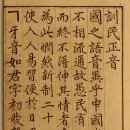 訓民正音
國之語音異乎中國
不相流通故愚民有
而終不得伸其情者
為此憫然新制二十
使人人易習便於日
ㄱ牙音如君字初發